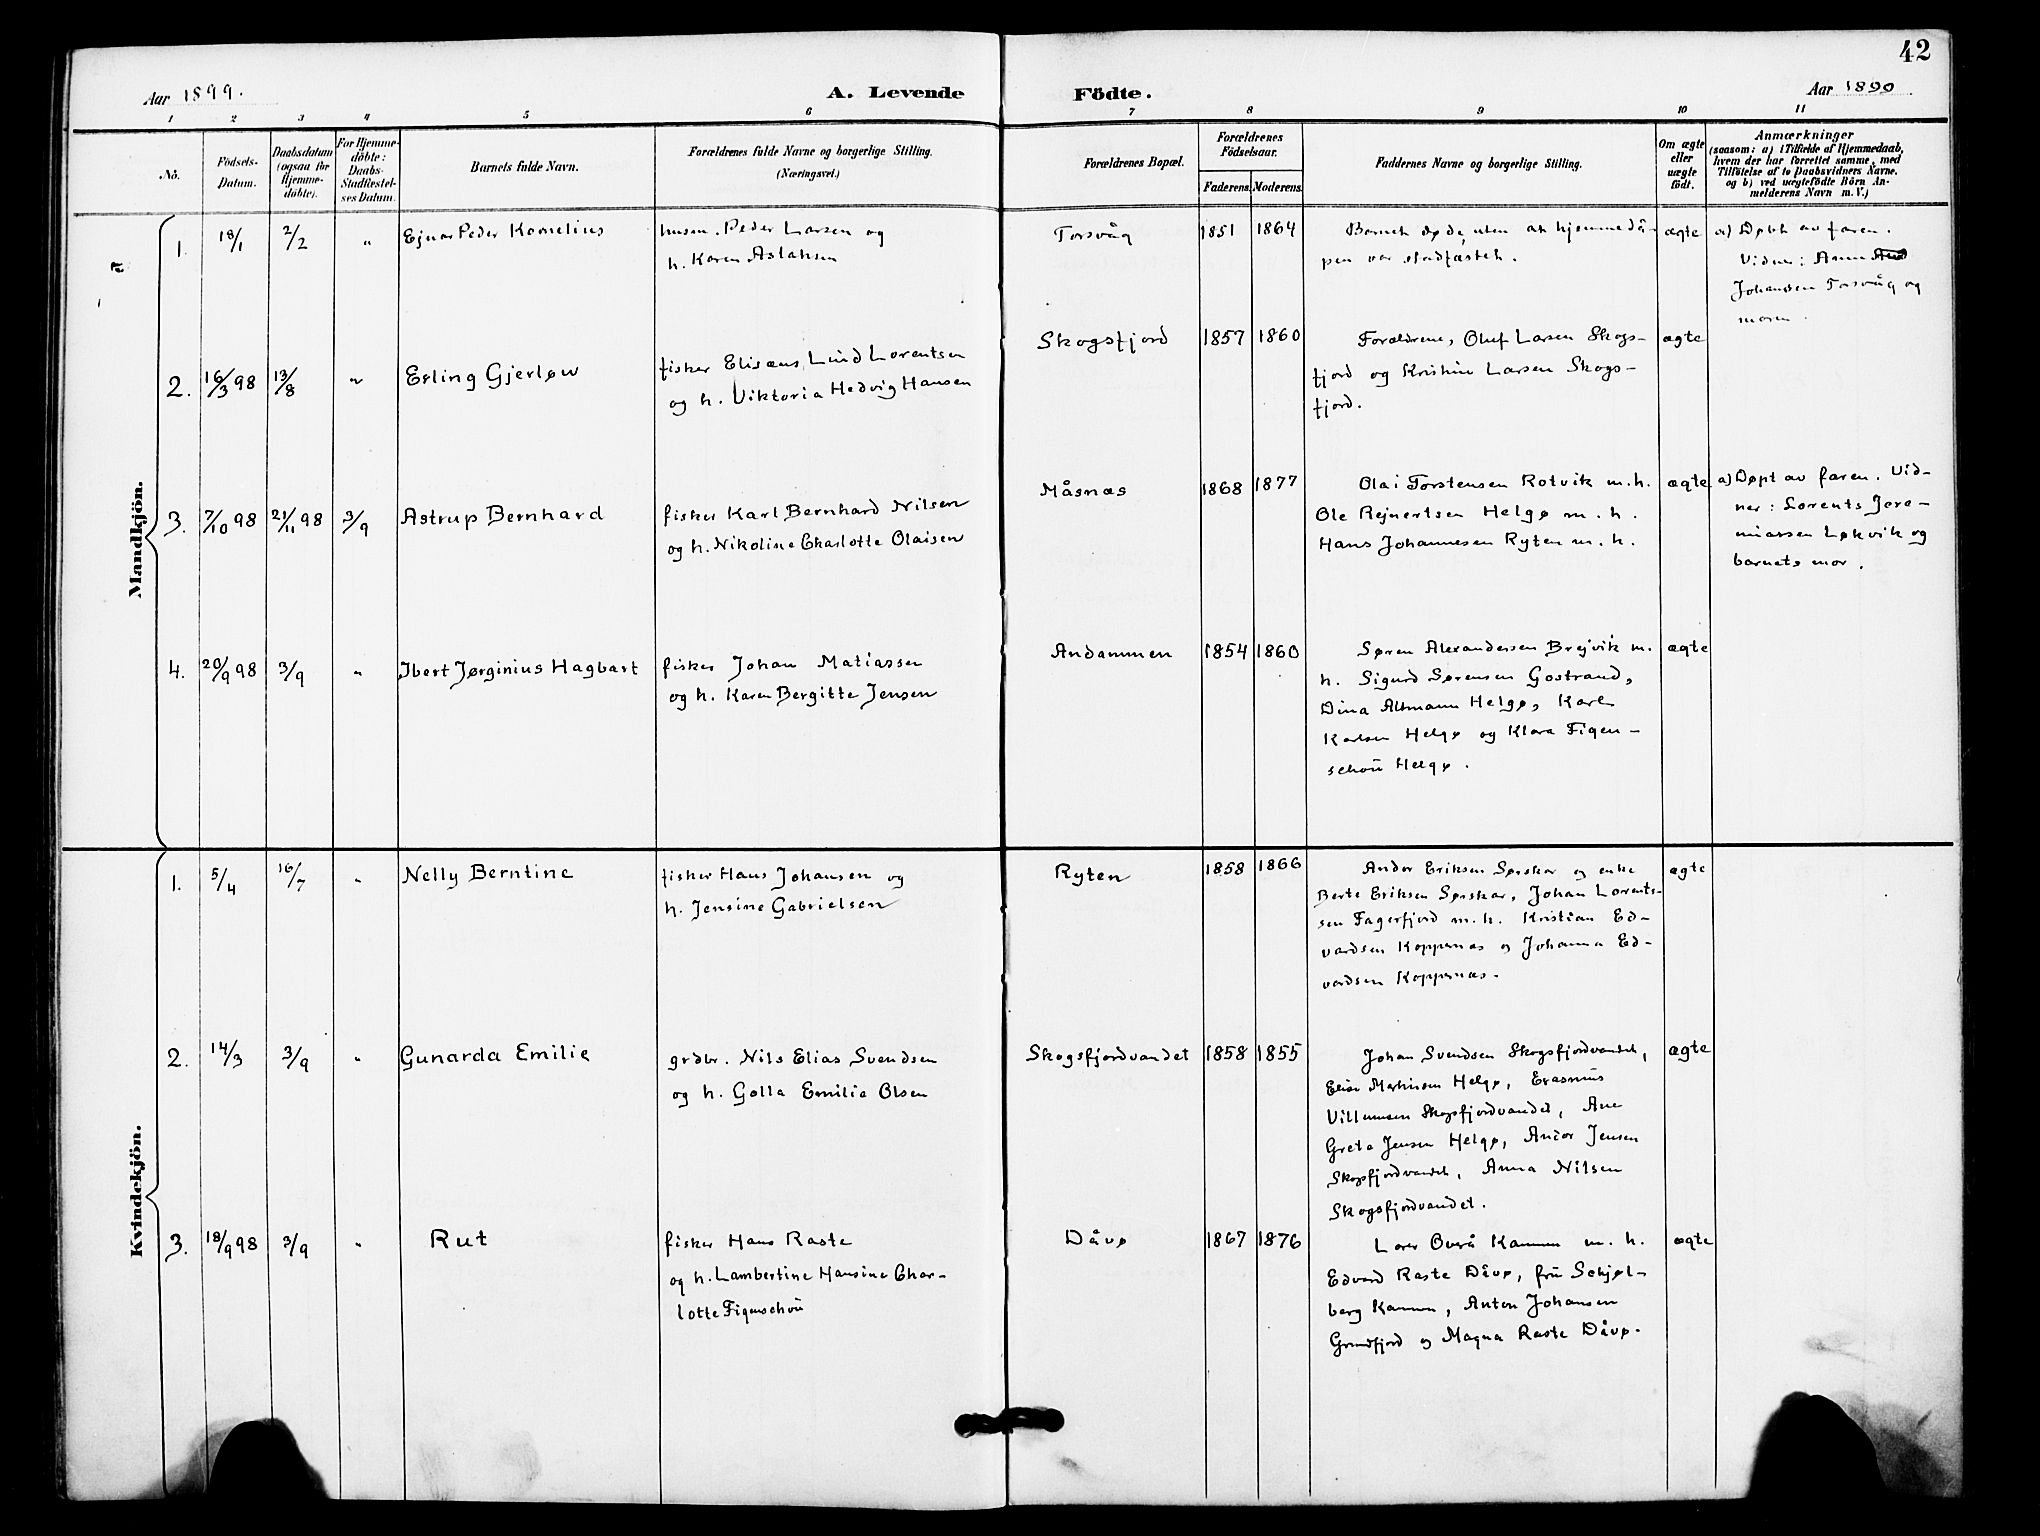 42
Aar 1899.
A. Levende
Födte.
Aar 1890.
1 2 3 4 5 6 7 8 9 10 11
No.
Födsels-
Datum.
Daabsdatum
(ogsaa for
Hjemme-
döbte).
For Hjemme-
döbte:
Daabs-
Stadfæstel-
ses Datum.
Barnets fulde Navn.
Forældrenes fulde Navne og borgerlige Stilling.
(Næringsvei.)
Forældrenes Bopæl.
Forældrenes
Födselsaar.
Faderens. Moderens.
Faddernes Navne og borgerlige Stilling.
Om ægte
eller
uægte
födt.
Anmærkninger
(saasom: a) i Tilfælde af Hjemmedaab,
hvem der har forrettet samme, med
Tilföielse af to Daabsvidners Navne.
og b) ved uægtefödte Börn An-
melderens Navn m. V.)
Mandkjön.
1. 18/1 2/2 " Ejnar Peder Kornelius
husm. Peder Larsen og
h. Karen Aslaksen
Torsvåg 1851 1864
Barnet døde, uten at hjemmedå-
pen var stadfæstet.
ægte
a) Døbt av faren.
Vidner: Anna
Johansen Torsvåg og
moren.
2. 16/3 98 13/8 " Erling Gjerløw
fisker Elisæus Lind Lorentsen
og h. Viktoria Hedvig Hansen
Skogsfjord 1857 1860
Forældrene, Oluf Larsen Skogs-
fjord og Kristine Larsen Skogs-
fjord.
ægte
3. 7/10 98 21/11 98 3/9 Astrup Bernhard
fisker Karl Bernhard Nilsen
og h. Nikoline Charlotte Olaisen
Måsnæs 1868 1877
Olai Torstensen Rotvik m. h.
Ole Rejnertsen Helgø m. h.
Hans Johannesen Ryten m. h.
ægte
a) Døpt av faren. Vid-
ner: Lorents Jere-
miassen Løkvik og
barnets mor.
4. 20/9 98 3/9 " Ibert Jørginius Hagbart
fisker Johan Matiassen
og h. Karen Bergitte Jensen
Andammen 1854 1860
Søren Alexandersen Brejvik m.
h. Sigurd Sørensen Gostrand,
Dina Altmann Helgø, Karl
Karlsen Helgø og Klara Figen-
schou Helgø.
ægte
Kvindekjön.
1. 5/4 16/7 " Nelly Berntine
fisker Hans Johansen og
h. Jensine Gabrielsen
Ryten 1858 1866
Andor Eriksen Sørskar og enke
Berte Eriksen Sørskar, Johan Lorents-
sen Fagerfjord m. h. Kristian Ed-
vardsen Koppernæs og Johanna Ed-
vardsen Koppernæs.
ægte
2. 14/3 3/9 " Gunarda Emilie
grdbr. Nils Elias Svendsen
og h. Golla Emilie Olsen
Skogsfjordvandet 1858 1855
Johan Svendsen Skogsfjordvandet,
Elise Martinsen Helgø, Erasmus
Villumsen Skogsfjordvandet, Ane
Greta Jensen Helgø, Andor Jensen
Skogsfjordvandet, Anna Nilsen
Skogsfjordvandet.
ægte
3. 18/9 98 3/9 " Rut
fisker Hans Raste
og h. Lambertine Hansine Char-
lotte Figenschou
Dåvø 1867 1876
Lorer Overå Kammen m. h.
Edvard Raste Dåvø, fru Schjøl-
berg Kammen, Anton Johansen
Grundfjord og Magna Raste Dåvø.
ægte